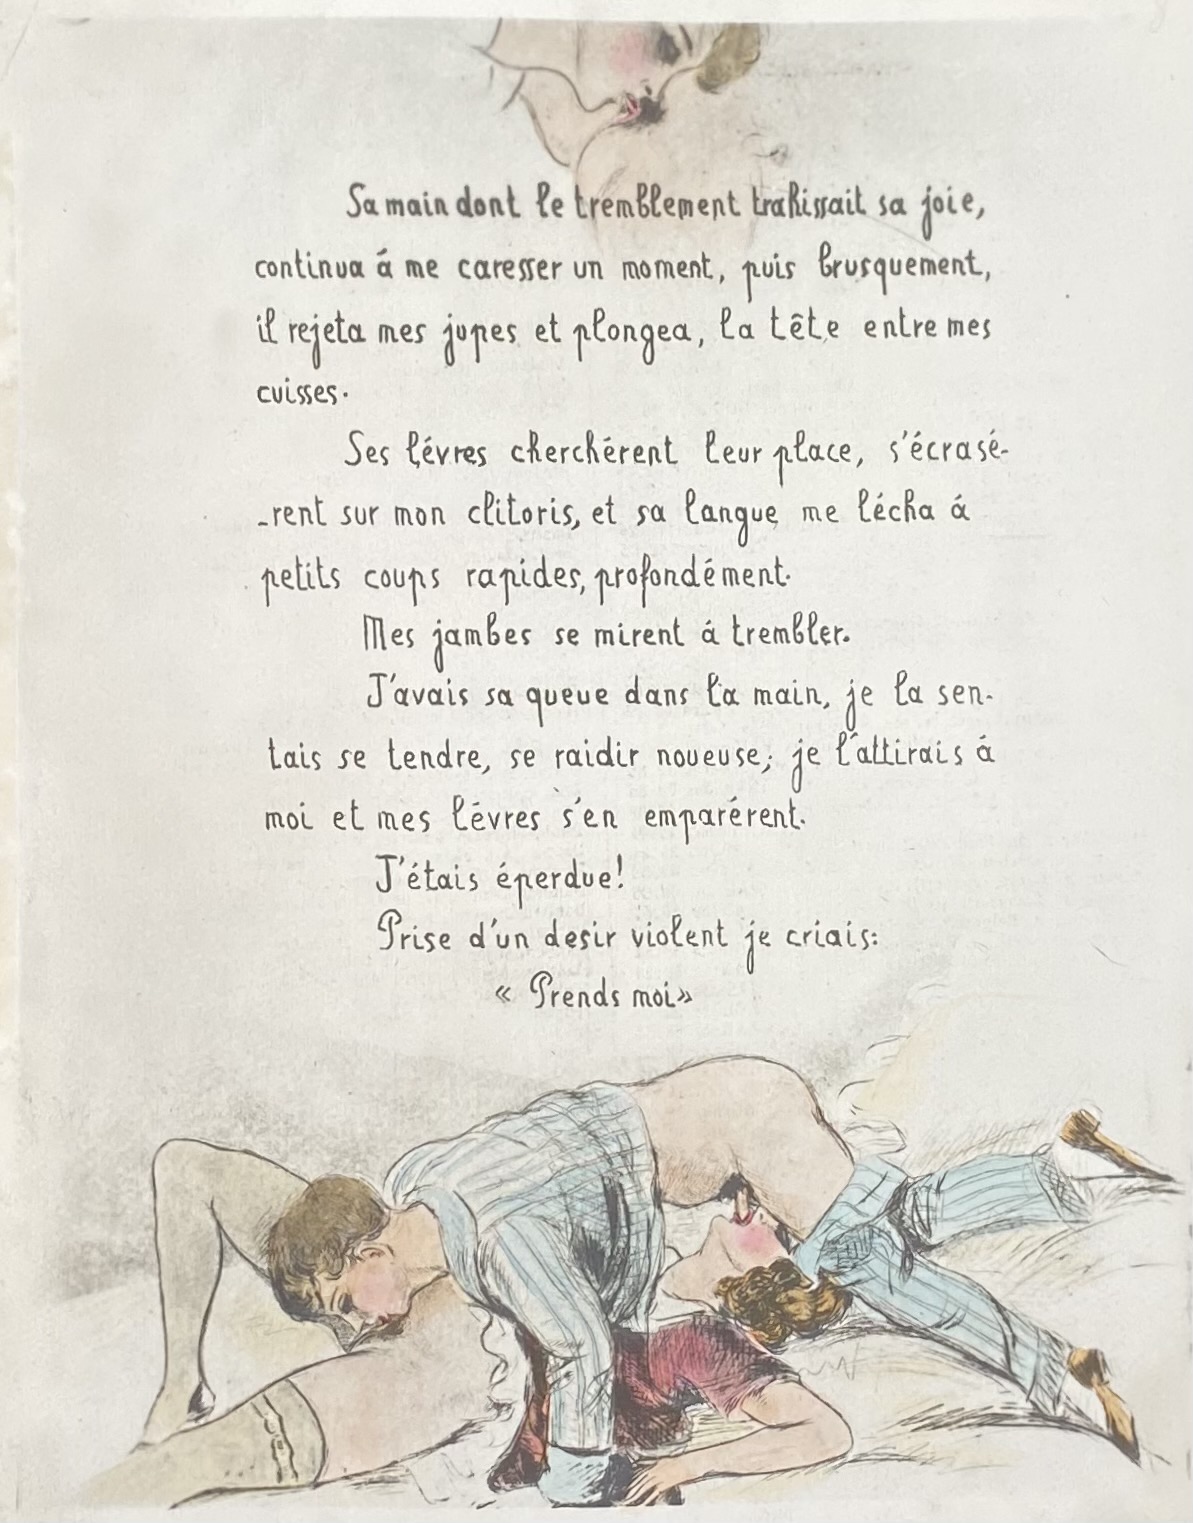 Sa main dont le tremblement trahissait sa joie,
continua á me caresser un moment, puis brusquement,
il rejeta mes jupes et plongea, la tête entre mes
cuisses.
Ses lévres cherchérent leur place, s'écrasé-
-rent sur mon clitoris, et sa langue me lécha á
petits coups rapides, profondément.
Mes jambes se mirent á trembler.
J'avais sa queue dans la main, je la sen-
tais se tendre, se raidir noueuse; je l'attirais á
moi et mes lévres s'en emparérent.
J'étais éperdue!
Prise d'un desir violent je criais:
« Prends moi»